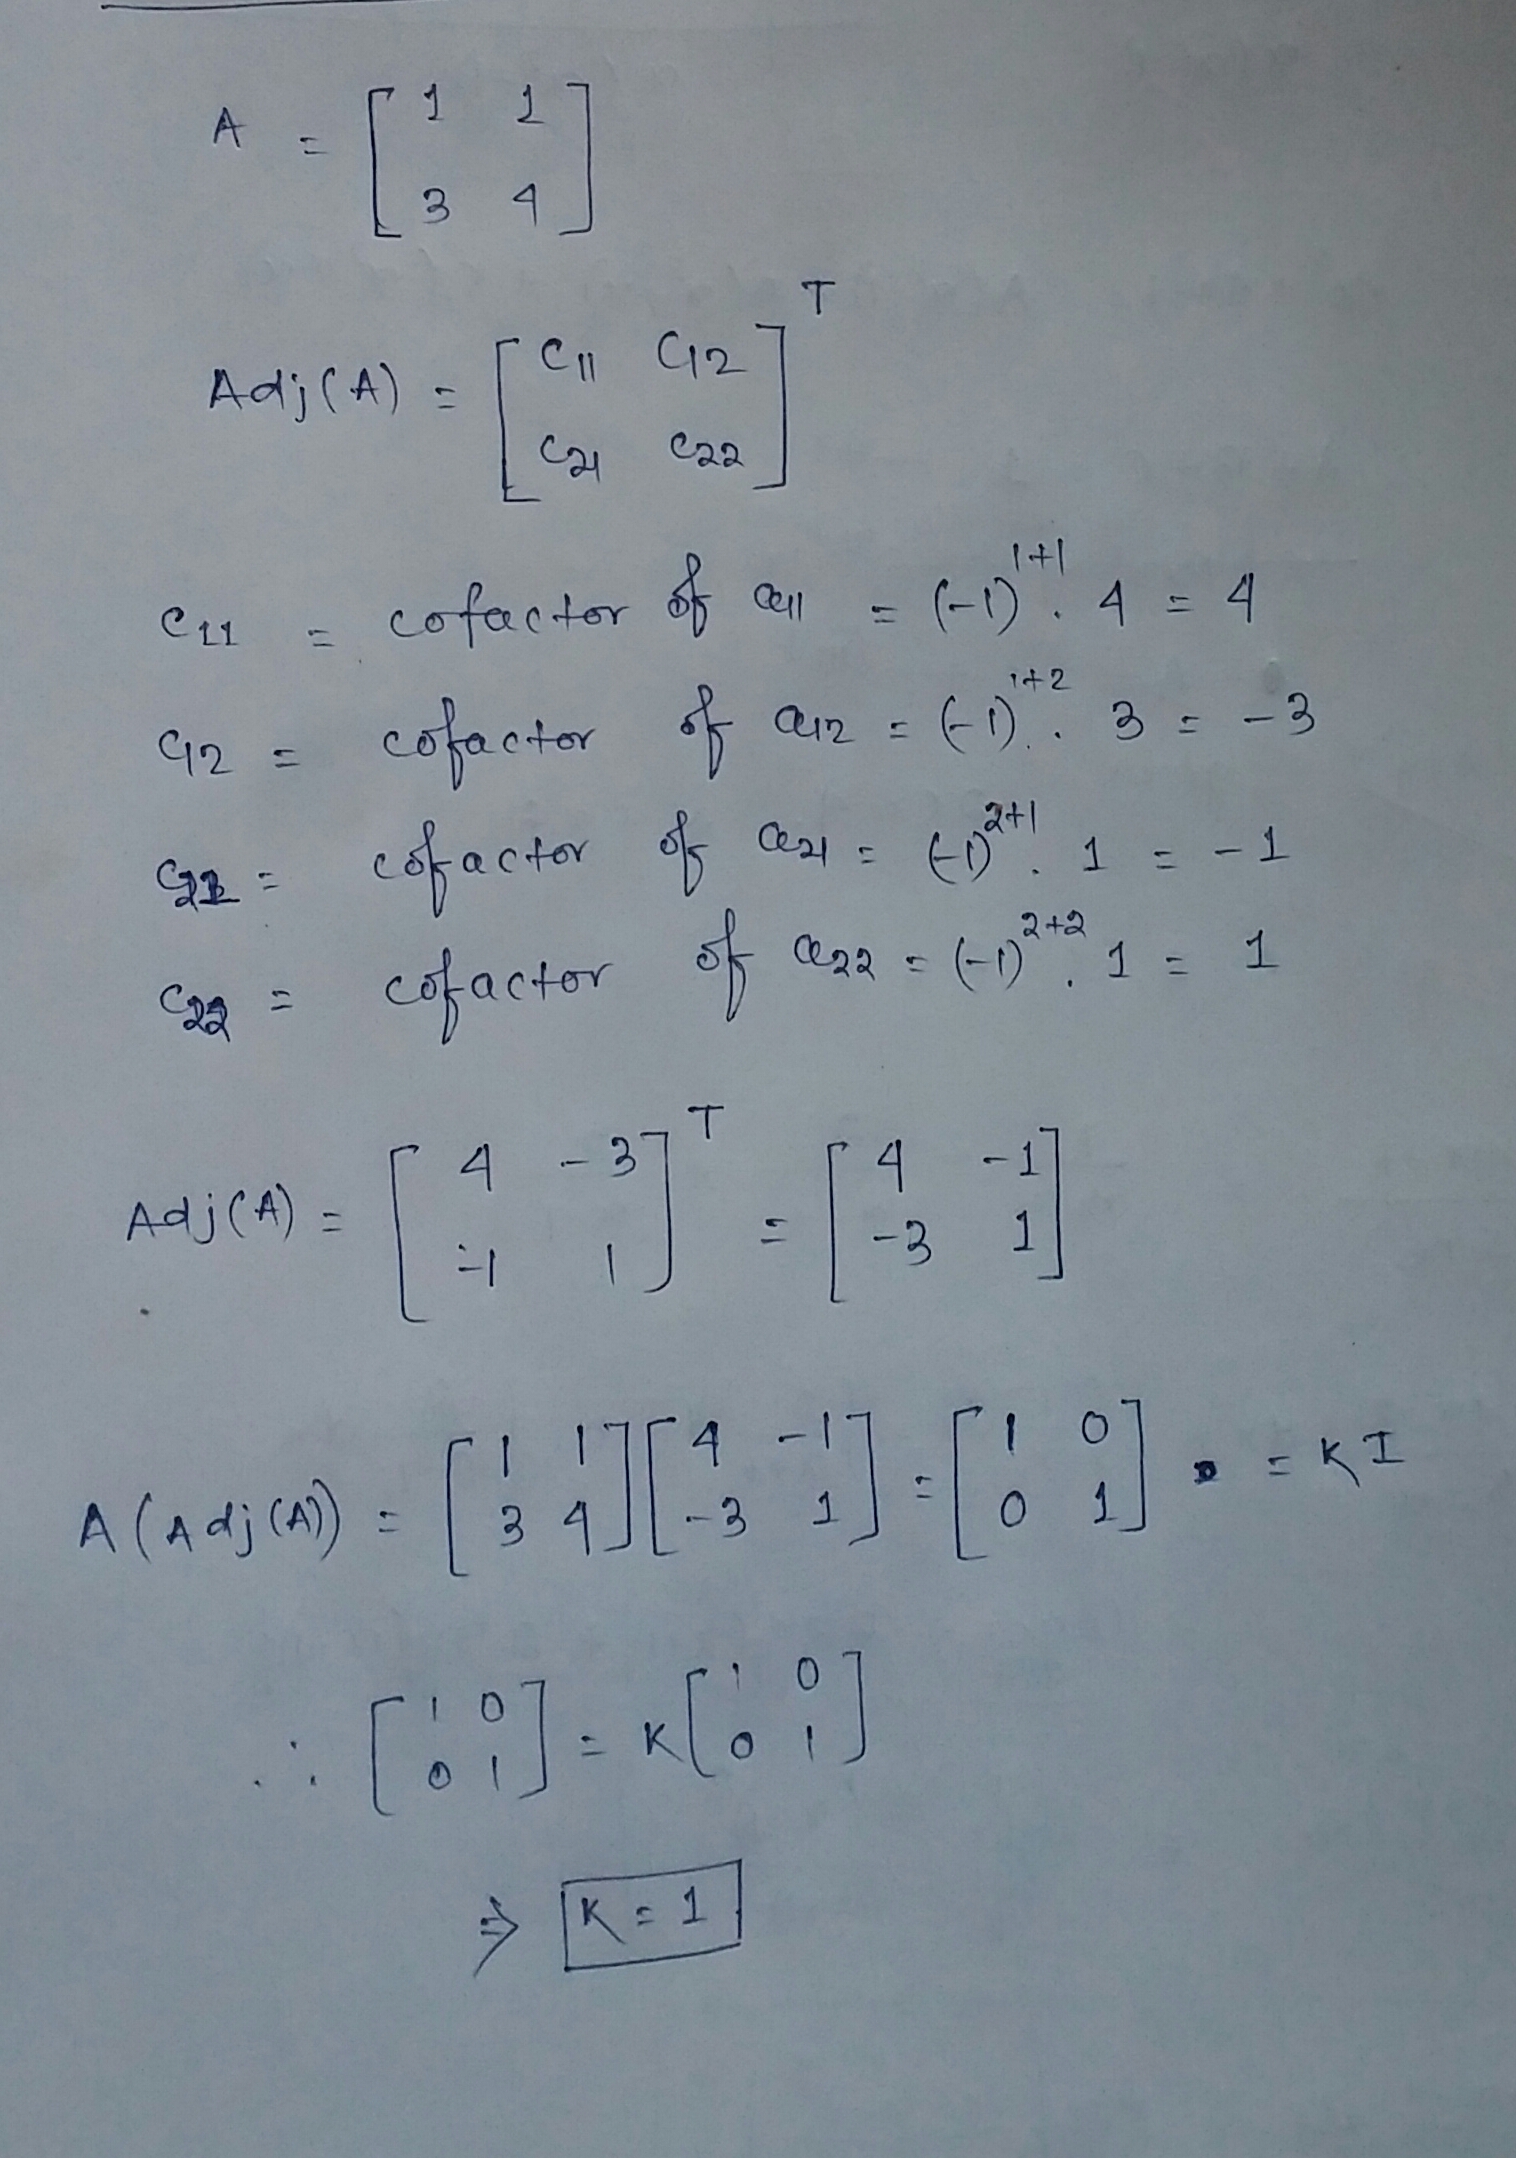 A = [1 1
3 4]
Adj(A) = [C11 C12
C21 C22]^T
C11 = cofactor of a11 = (-1)^1+1 . 4 = 4
C12 = cofactor of a12 = (-1)^1+2 . 3 = -3
C21 = cofactor of a21 = (-1)^2+1 . 1 = -1
C22 = cofactor of a22 = (-1)^2+2 . 1 = 1
Adj(A) = [4 -3
-1 1]^T = [4 -1
-3 1]
A(Adj(A)) = [1 1
3 4] [4 -1
-3 1] = [1 0
0 1] = KI
∴ [1 0
0 1] = K [1 0
0 1]
⇒ K = 1